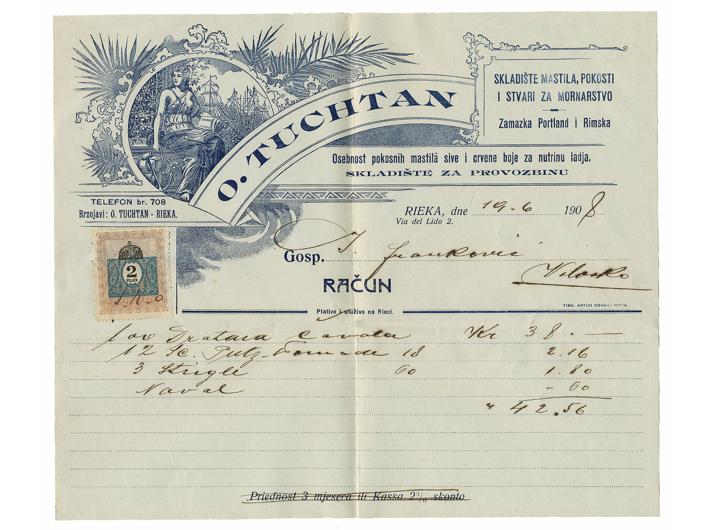 O. TUCHTAN
SKLADIŠTE MASTILA, POKOSTI
I STVARI ZA MORNARSTVO
Zamazka Portland i Rimska
Osebnost pokosnih mastila sive i crvene boje za nutrinu ladja.
SKLADIŠTE ZA PROVOZBINU
TELEFON br. 708
Brzojavi: O. TUCHTAN - RIEKA.
RIEKA, dne 19-6 1908
Via del Lido 2.
Gosp. J. Franković
Volosko
2
RAČUN
Plativo i utuživo na Rieci.
TISK. ARTUR NOVAK -
Kr 38.—
12 Sc. Putz-Pomade 18 2.16
3 Strigle 60 1.80
Naval - 60
" 42.56
Priednost 3 mjeseca ili Kassa 2% skonto